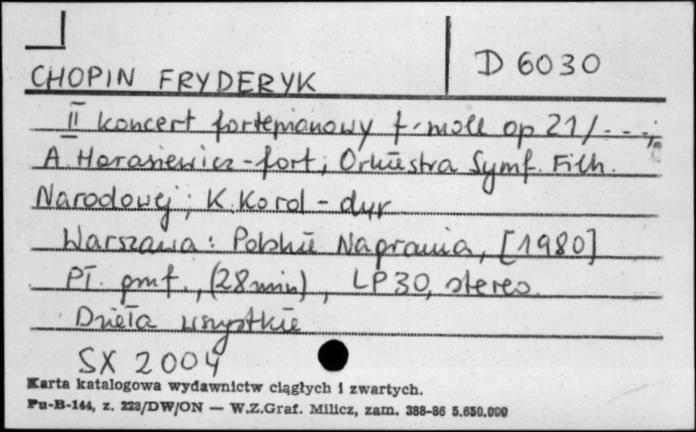 CHOPIN FRYDERYK
D 6030
II koncert fortepianowy f-moll op 21/---;
A. Harasiewicz - fort; Orkiestra Symf. Filh.
Narodowej; K. Kord - dyr
Warszawa: Polskie Nagrania, [1980]
Pł. gmf., (28 min), LP 30, stereo.
Dzieła wszystkie
SX 2004
Karta katalogowa wydawnictw ciągłych i zwartych.
Pu-B-144, z. 223/DW/ON — W.Z.Graf. Milicz, zam. 388-86 5.650.000